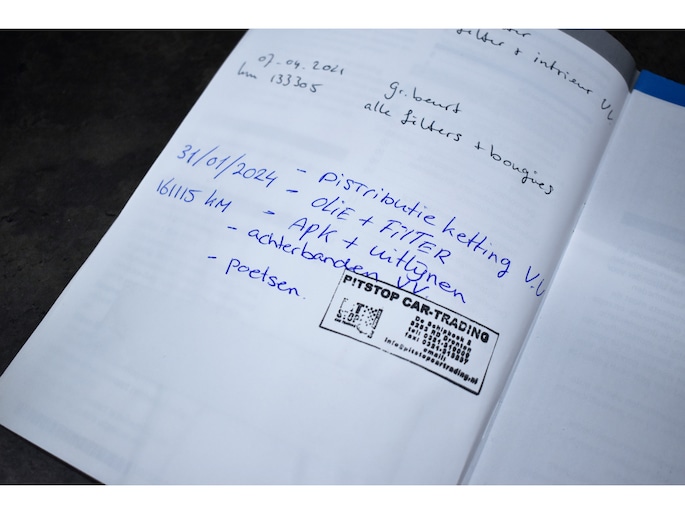 filter + intrieur V.V.
07-04.2021
km 133305
gr. beurt
alle filters + bougies
31/01/2024 - Distributie ketting V.V
161115 km - oliE + FilTER
- APK + uitlijnen
- achterbanden VV
- poetsen.
P!TSTOP CAR-TRADING
De Schipbeek 5
info@pitstopcartrading.nl